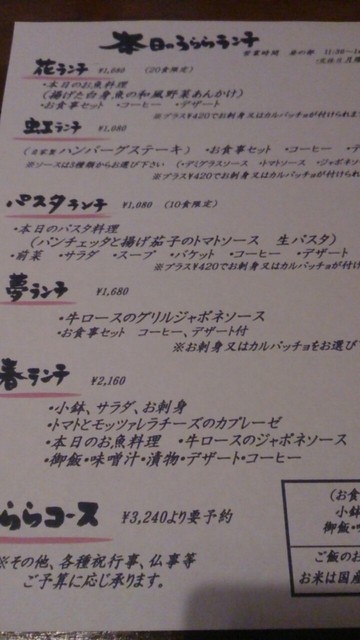 本日のうららランチ
営業時間 昼の部 11:30~1
花ランチ ¥1,080 (20食限定)
・本日のお魚料理
(揚げた白身魚の和風野菜あんかけ)
・お食事セット ・コーヒー ・デザート
※プラス¥420でお刺身又はカルパッチョが付けられま
虹ランチ ¥1,080
(自家製ハンバーグステーキ) ・お食事セット ・コーヒー ・デ
※ソースは3種類からお選び下さい (・デミグラスソース ・トマトソース ・ジャポネソ
※プラス¥420でお刺身又はカルパッチョが付けら
パスタランチ ¥1,080 (10食限定)
・本日のパスタ料理
(パンチェッタと揚げ茄子のトマトソース 生パスタ)
・前菜 ・サラダ ・スープ ・バケット ・コーヒー ・デザート
※プラス¥420でお刺身又はカルパッチョが付け
夢ランチ ¥1,680
・牛ロースのグリルジャポネソース
・お食事セット コーヒー、デザート付
※お刺身又はカルパッチョをお選び
春ランチ ¥2,160
・小鉢、サラダ、お刺身
・トマトとモッツァレラチーズのカプレーゼ
・本日のお魚料理 ・牛ロースのジャポネソース
・御飯・味噌汁・漬物・デザート・コーヒー
ららコース ¥3,240より要予約
※その他、各種祝行事、仏事等
ご予算に応じ承ります。
(お食
小鉢
御飯・
ご飯のお
お米は国産